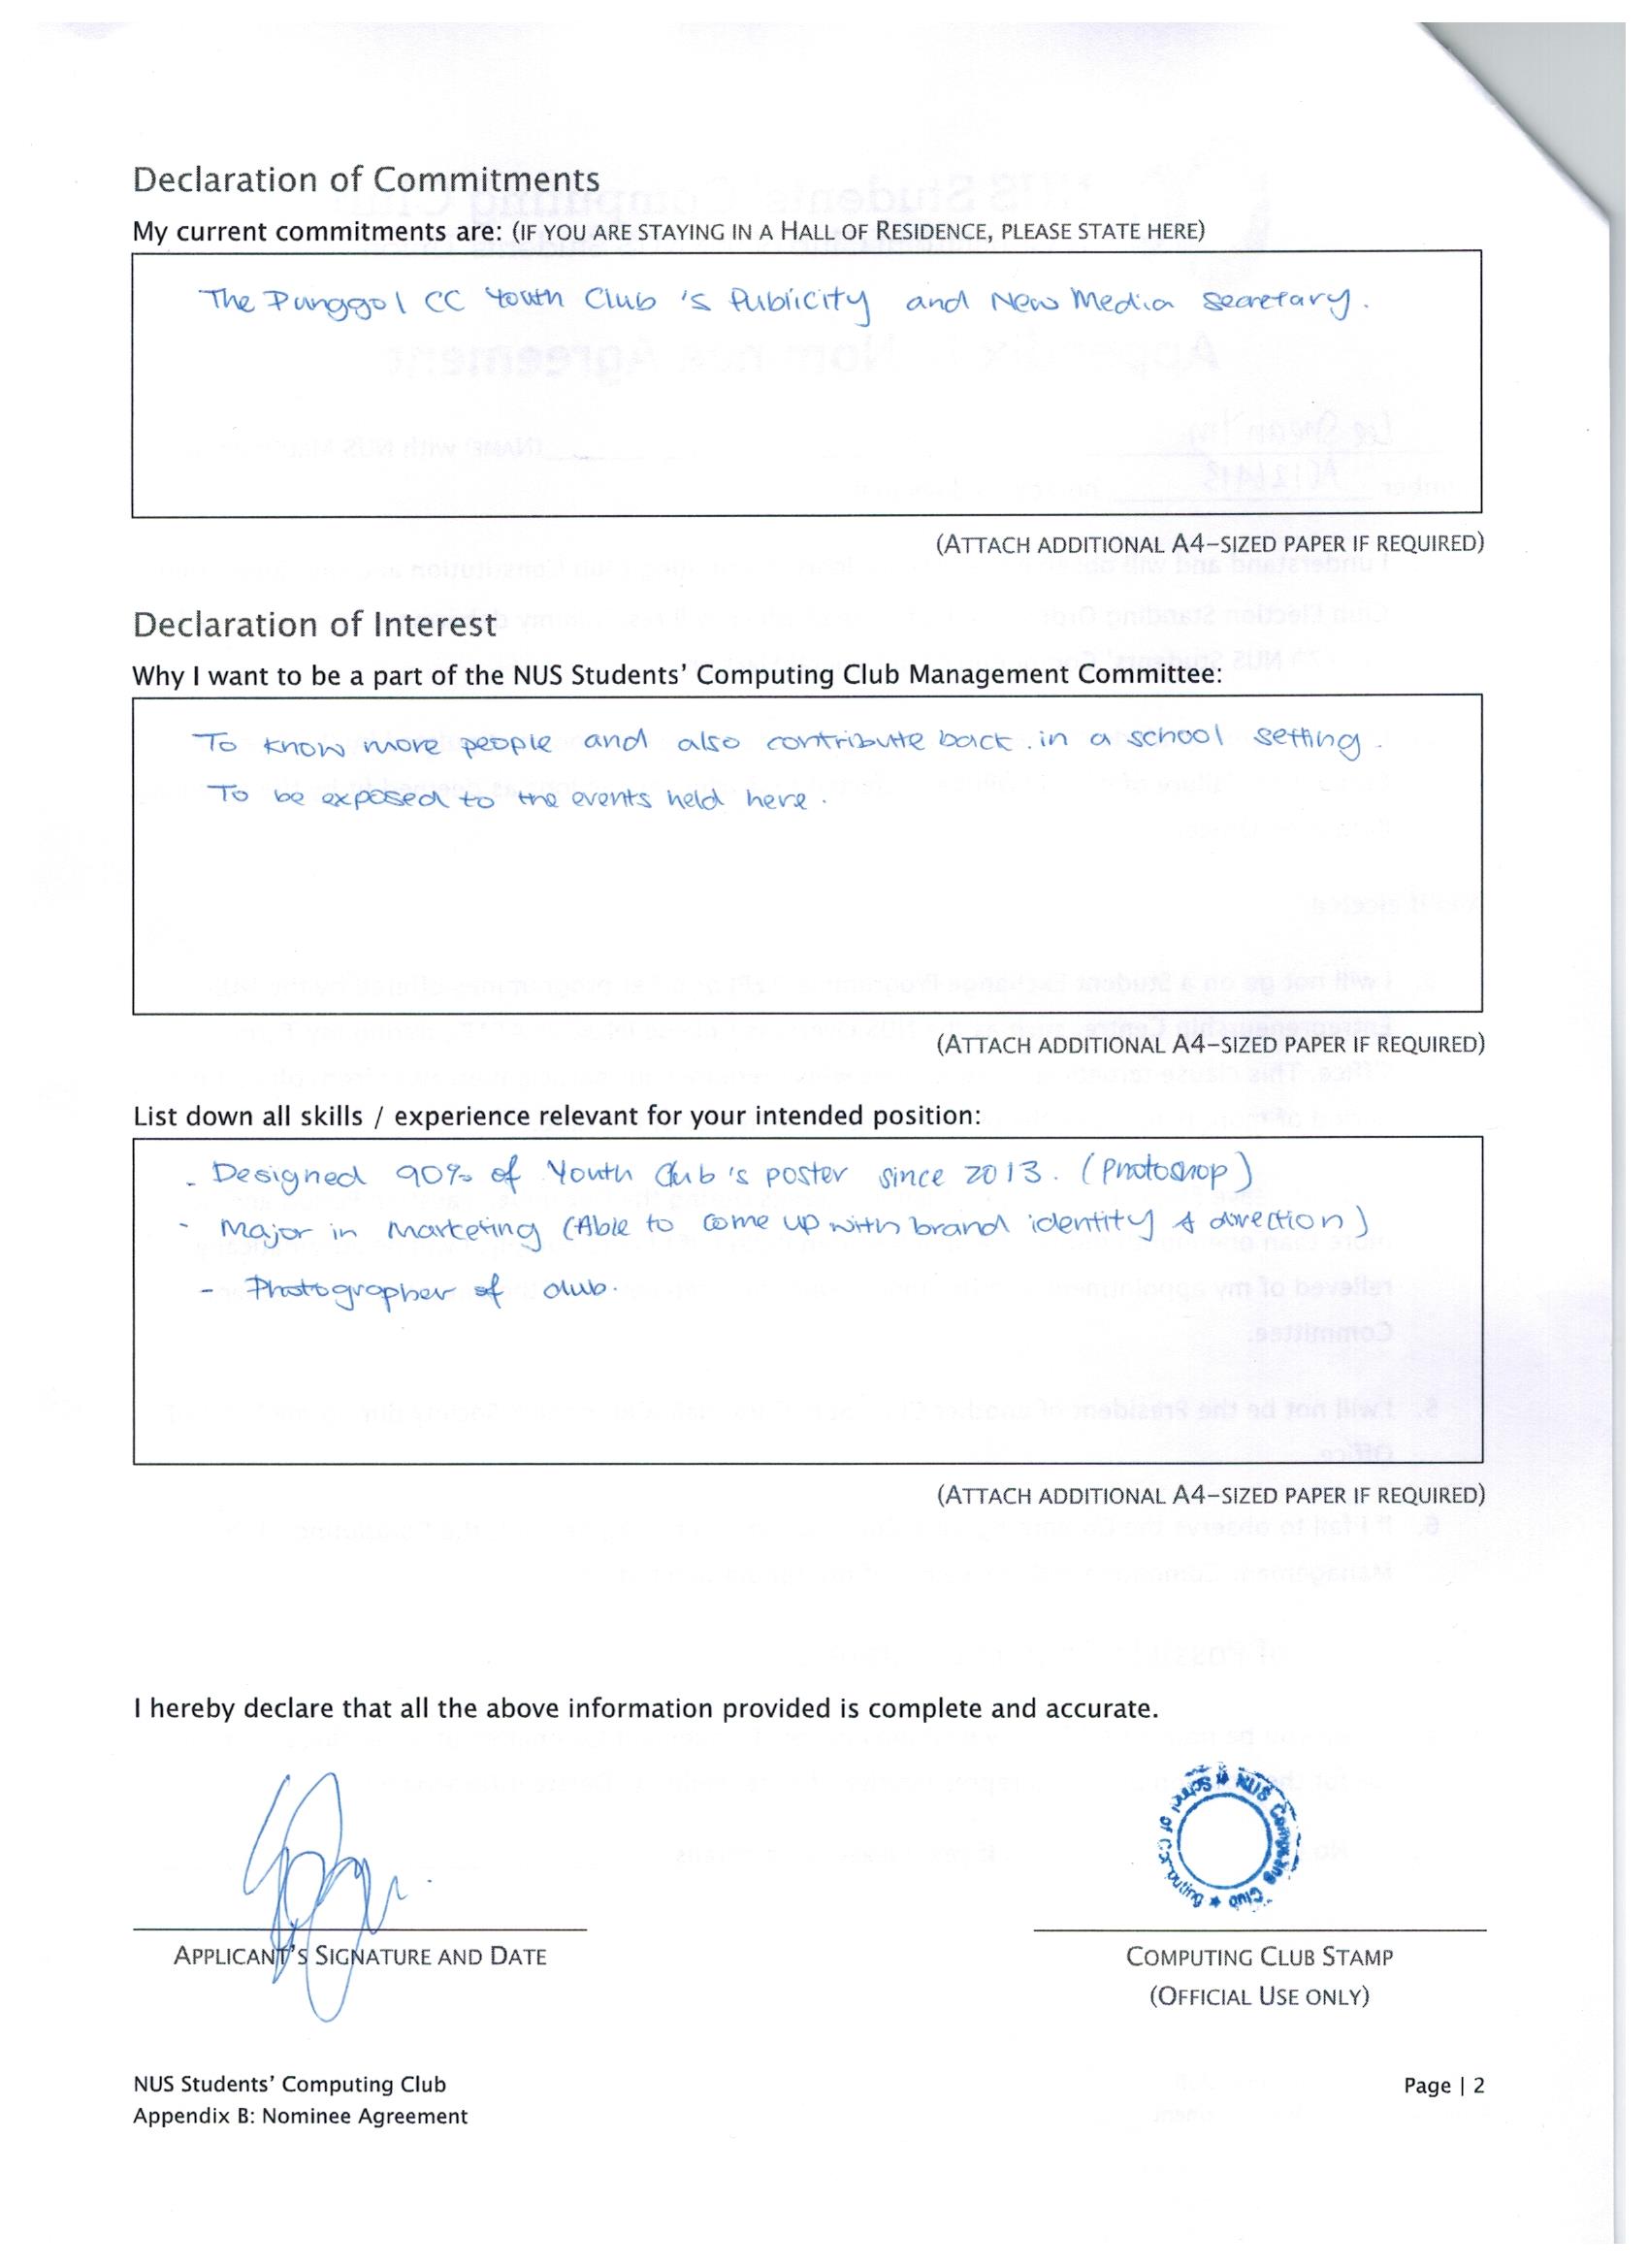 Declaration of Commitments
My current commitments are: (IF YOU ARE STAYING IN A HALL OF RESIDENCE, PLEASE STATE HERE)
The Punggol CC Youth Club 's Publicity and New Media Secretary.
(ATTACH ADDITIONAL A4-SIZED PAPER IF REQUIRED)
Declaration of Interest
Why I want to be a part of the NUS Students' Computing Club Management Committee:
To know more people and also contribute back in a school setting.
To be exposed to the events held here.
(ATTACH ADDITIONAL A4-SIZED PAPER IF REQUIRED)
List down all skills / experience relevant for your intended position:
- Designed 90% of Youth Club's poster since 2013. (Photoshop)
- Major in Marketing (Able to come up with brand identity & direction)
- Photographer of club.
(ATTACH ADDITIONAL A4-SIZED PAPER IF REQUIRED)
I hereby declare that all the above information provided is complete and accurate.
NUS Computing Club ★ School of Computing ★
APPLICANT'S SIGNATURE AND DATE
COMPUTING CLUB STAMP
(OFFICIAL USE ONLY)
NUS Students' Computing Club
Page | 2
Appendix B: Nominee Agreement